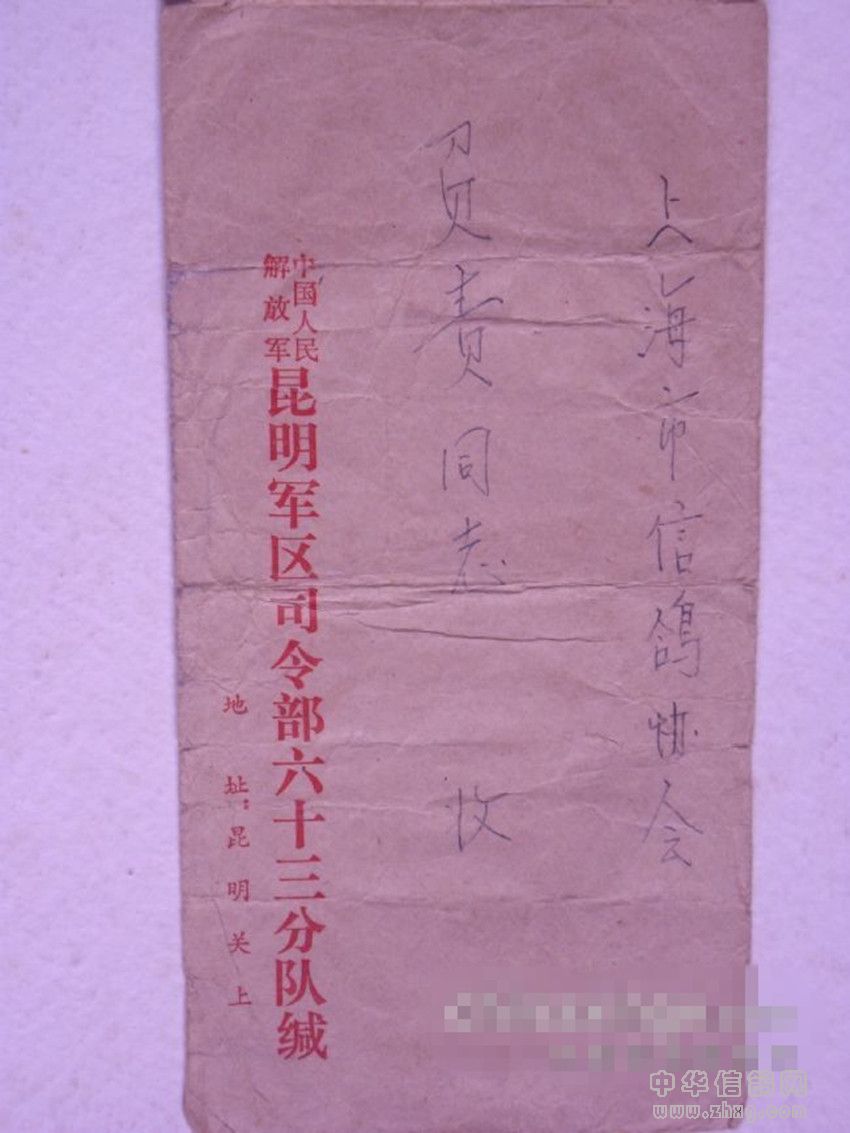 上海市信鸽协会
负责同志 收
中国人民
解放军
昆明军区司令部六十三分队缄
地址：昆明关上
中华信鸽网
www.zhxg.com